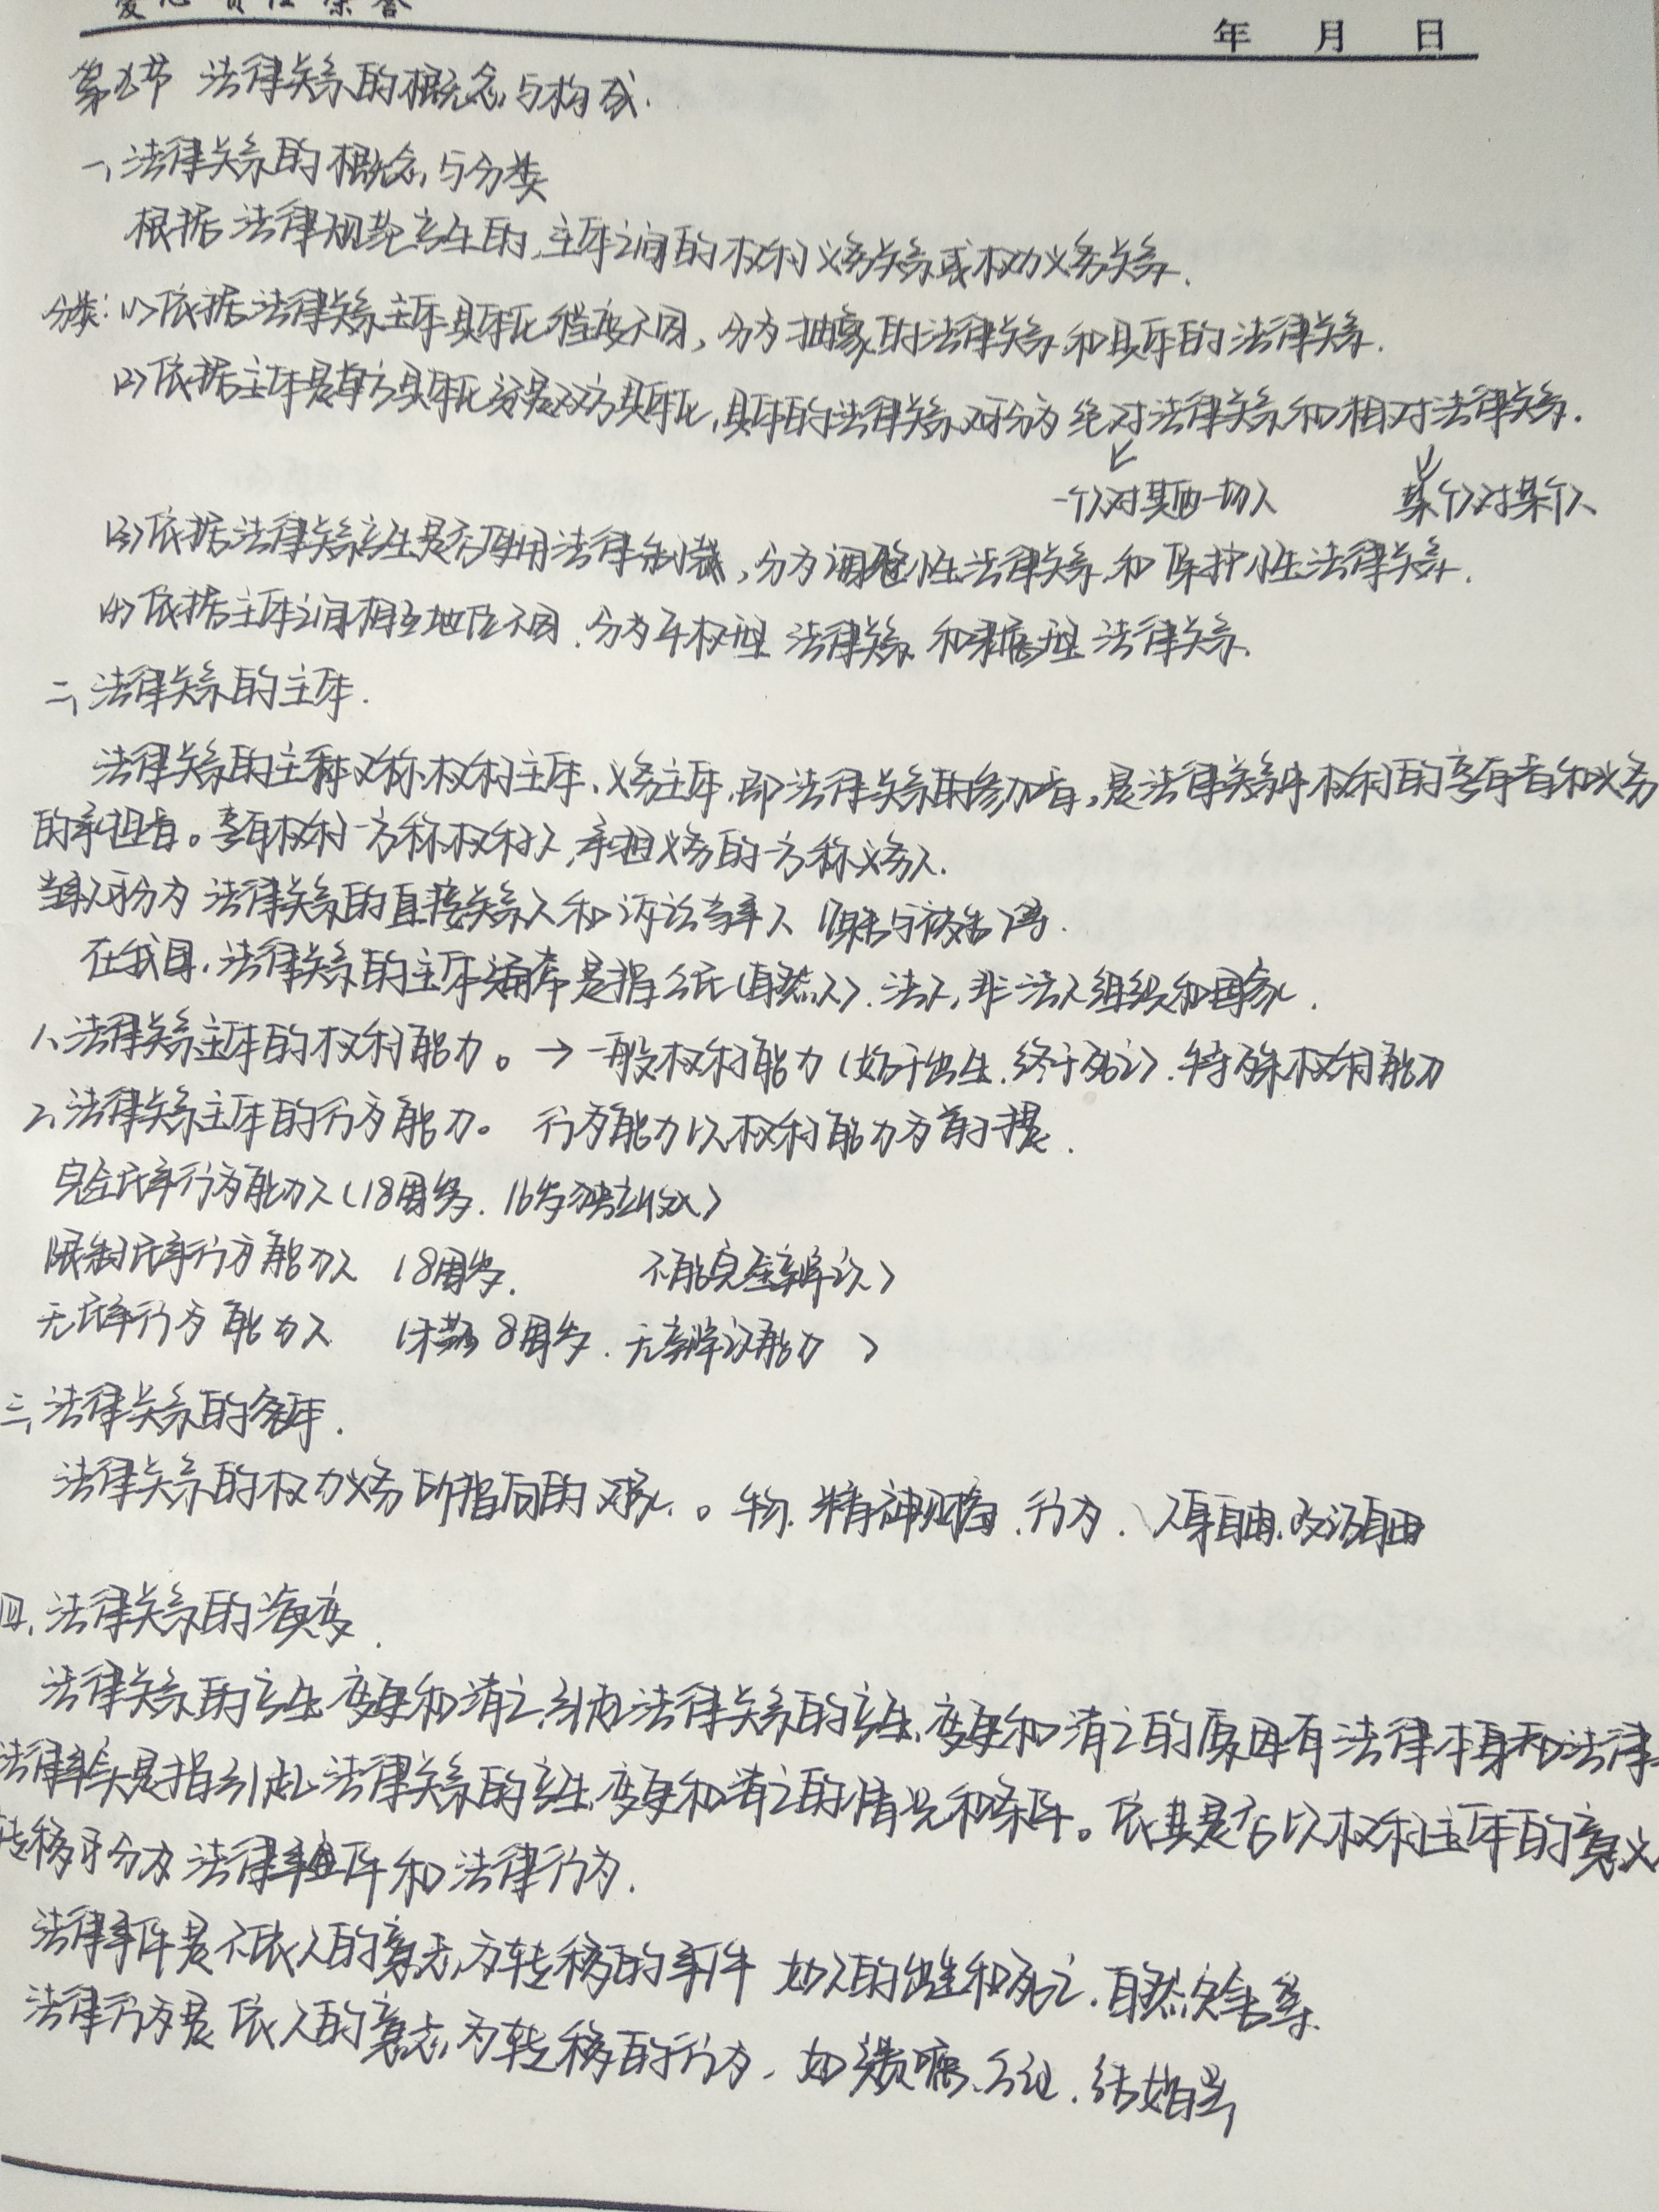 爱心 责任 荣誉
年 月 日
第五节 法律关系的概念与构成.
一、法律关系的概念与分类
根据法律规范产生的,主体之间的权利义务关系或权力义务关系.
分类:(1)依据法律关系主体具体化程度不同,分为抽象的法律关系和具体的法律关系.
(2)依据主体是单方具体化还是双方具体化,具体的法律关系又可分为绝对法律关系和相对法律关系.
↙ ↓
一个人对其他一切人 某个人对某个人
(3)依据法律关系产生是否适用法律制裁,分为调整性法律关系和保护性法律关系.
(4)依据主体之间相互地位不同.分为平权型法律关系和隶属型法律关系.
二、法律关系的主体.
法律关系的主体又称权利主体、义务主体,即法律关系的参加者,是法律关系中权利的享有者和义务
的承担者。享有权利一方称权利人,承担义务的一方称义务人.
当事人可分为法律关系的直接关系人和诉讼当事人(原告与被告)等.
在我国,法律关系的主体通常是指公民(自然人).法人,非法人组织和国家.
1、法律关系主体的权利能力。→一般权利能力(始于出生.终于死亡).特殊权利能力
2、法律关系主体的行为能力。行为能力以权利能力为前提.
完全民事行为能力人(18周岁.16岁独立收入)
限制民事行为能力人(8周岁. 不能完全辨认)
无民事行为能力人(未满8周岁.无辨认能力)
三、法律关系的客体.
法律关系的权力义务所指向的对象.。物.精神财富.行为、人身自由.政治自由
四、法律关系的演变.
法律关系的产生、变更和消亡.引起法律关系的产生、变更和消亡的原因有法律本身和法律
法律事实是指引起法律关系的产生、变更和消亡的情况和条件。依其是否以权利主体的意义
转移可分为法律事件和法律行为.
法律事件是不依人的意志为转移的事件 如人的出生和死亡.自然灾害等.
法律行为是依人的意志为转移的行为.如 公证.结婚等